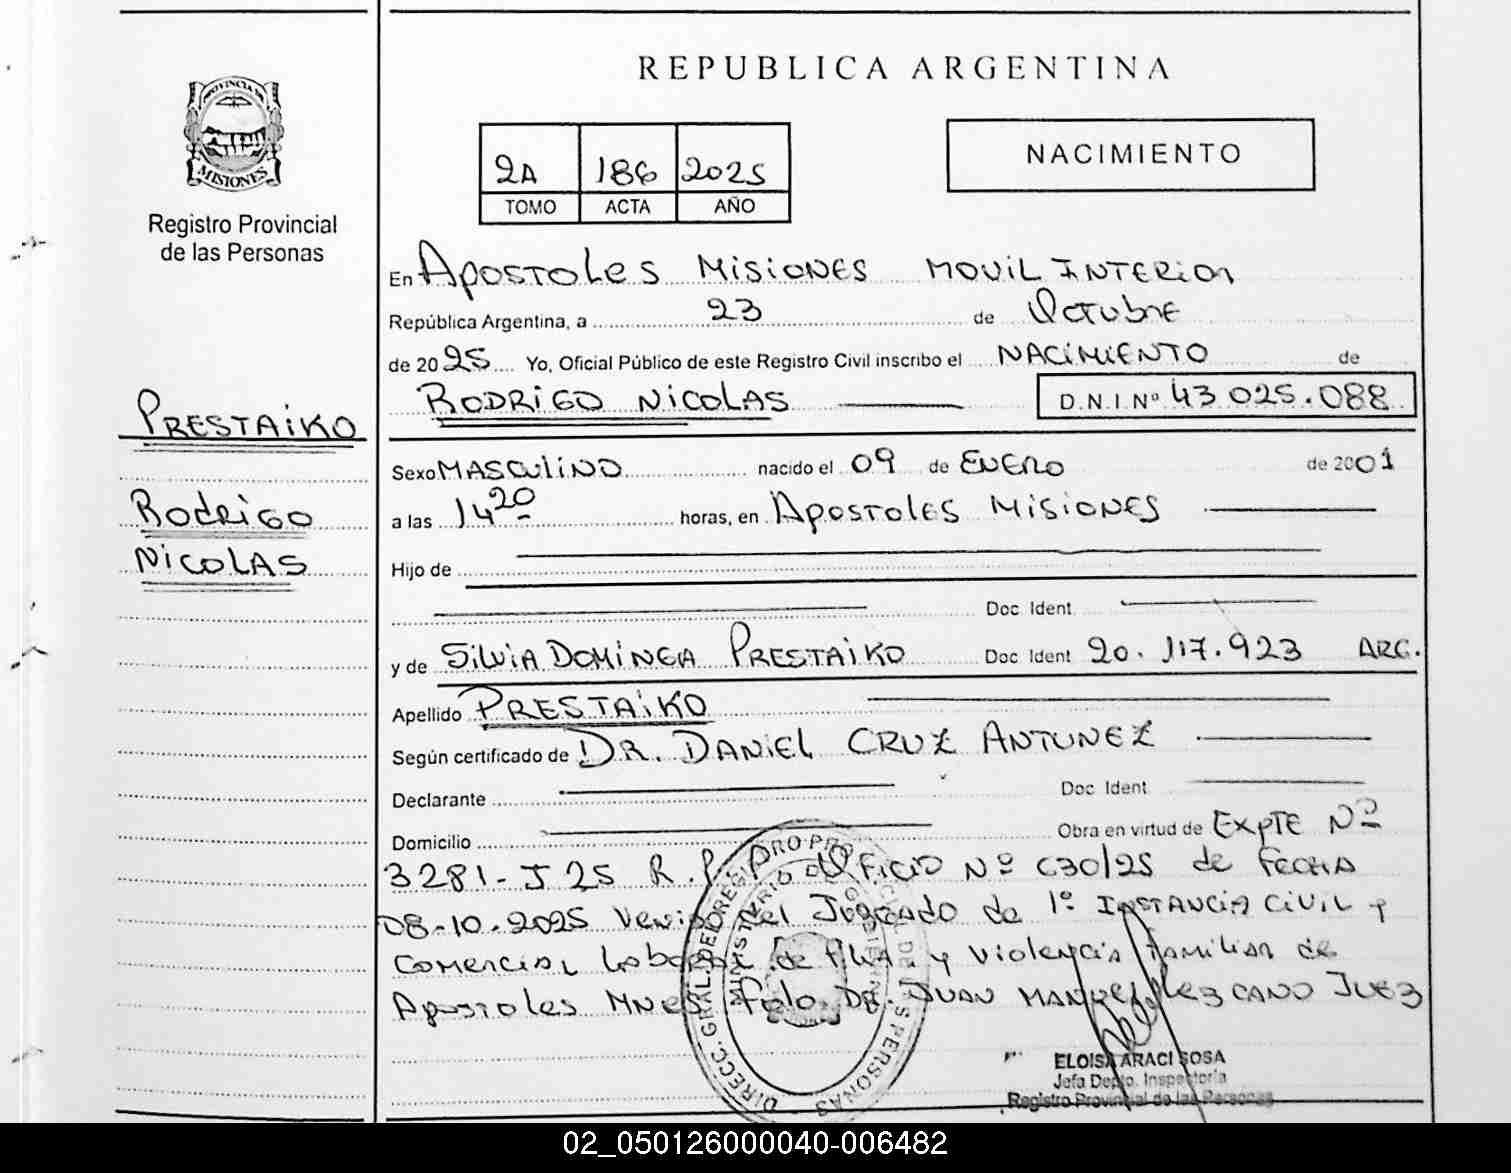 REPUBLICA ARGENTINA
PROVINCIA DE
MISIONES
Registro Provincial
de las Personas
2A 186 2025
TOMO ACTA AÑO
NACIMIENTO
En Apostoles Misiones Movil Interior
República Argentina, a 23 de Octubre
de 2025 Yo, Oficial Público de este Registro Civil inscribo el NACIMIENTO de
RODRIGO NICOLAS D.N.I.Nº 43.025.088
PRESTAIKO
Rodrigo
NICOLAS
Sexo MASCULINO nacido el 09 de ENERO de 2001
a las 14 20 horas, en Apostoles Misiones
Hijo de
Doc. Ident.
y de SILVIA DOMINGA PRESTAIKO Doc. Ident. 20.117.923 ARG.
Apellido PRESTAIKO
Según certificado de DR. DANIEL CRUZ ANTUNEZ
Declarante Doc. Ident.
Domicilio Obra en virtud de EXPTE Nº
3281-J 25 R.P.P. Oficio Nº 630/25 de FECHA
08-10-2025 del Juzgado de 1º INSTANCIA CIVIL y
Comercial, Laboral de FLIA. y Violencia Familiar de
Apostoles Mnes. DR. JUAN MANUEL CANO JUEZ
ELOISA ARACI SOSA
Jefa Depto. Inspectoría
Registro Provincial de las Personas
02_050126000040-006482